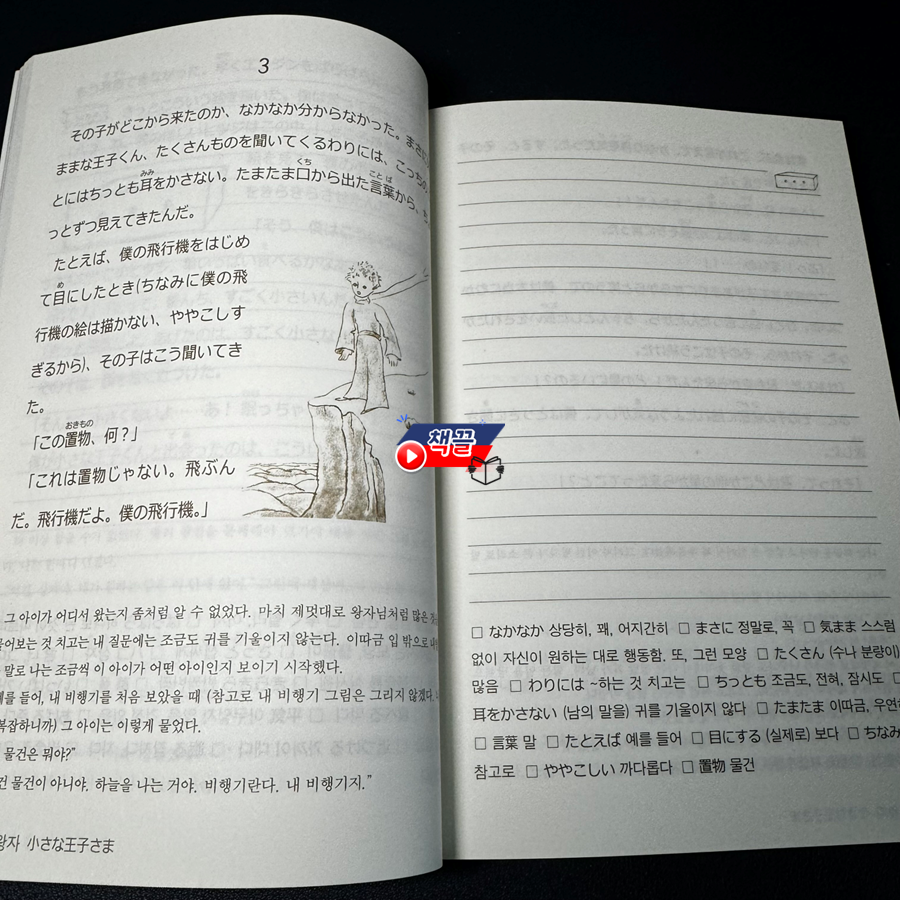 3
その子がどこから来たのか、なかなか分からなかった。まさに
ままな王子くん、たくさんものを聞いてくるわりには、こっちの
とにはちっとも耳をかさない。たまたま口から出た言葉から、
っとずつ見えてきたんだ。
たとえば、僕の飛行機をはじめ
て目にしたとき(ちなみに僕の飛
行機の絵は描かない、ややこしす
ぎるから)、その子はこう聞いてき
た。
「この置物、何？」
「これは置物じゃない。飛ぶん
だ。飛行機だよ。僕の飛行機。」
그 아이가 어디서 왔는지 좀처럼 알 수 없었다. 마치 제멋대로 왕자님처럼 많은
물어보는 것 치고는 내 질문에는 조금도 귀를 기울이지 않는다. 이따금 입 밖으로
말로 나는 조금씩 이 아이가 어떤 아이인지 보이기 시작했다.
예를 들어, 내 비행기를 처음 보았을 때 (참고로 내 비행기 그림은 그리지 않겠다.
복잡하니까) 그 아이는 이렇게 물었다.
물건은 뭐야?"
물건이 아니야. 하늘을 나는 거야. 비행기란다. 내 비행기지."
왕자 小さな王子さま
책끌
□ なかなか 상당히, 꽤, 어지간히 □ まさに 정말로, 꼭 □ 気まま 스스럼
없이 자신이 원하는 대로 행동함. 또, 그런 모양 □ たくさん (수나 분량이)
많음 □ わりには ~하는 것 치고는 □ ちっとも 조금도, 전혀, 잠시도 □
耳をかさない (남의 말을) 귀를 기울이지 않다 □ たまたま 이따금, 우연히
□ 言葉 말 □ たとえば 예를 들어 □ 目にする (실제로) 보다 □ ちなみ
참고로 □ ややこしい 까다롭다 □ 置物 물건